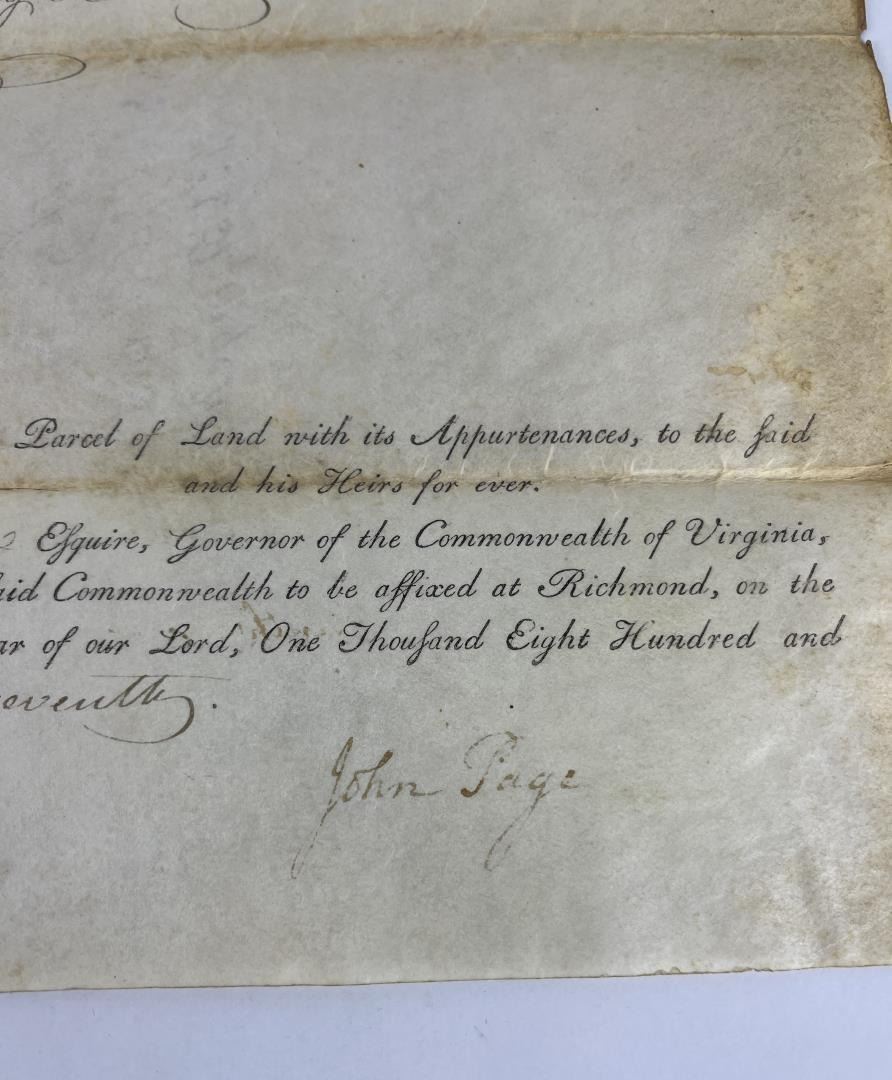 Parcel of Land with its Appurtenances, to the ſaid
and his Heirs for ever.
Eſquire, Governor of the Commonwealth of Virginia,
ſaid Commonwealth to be affixed at Richmond, on the
ar of our Lord, One Thouſand Eight Hundred and
eventh.
John Page